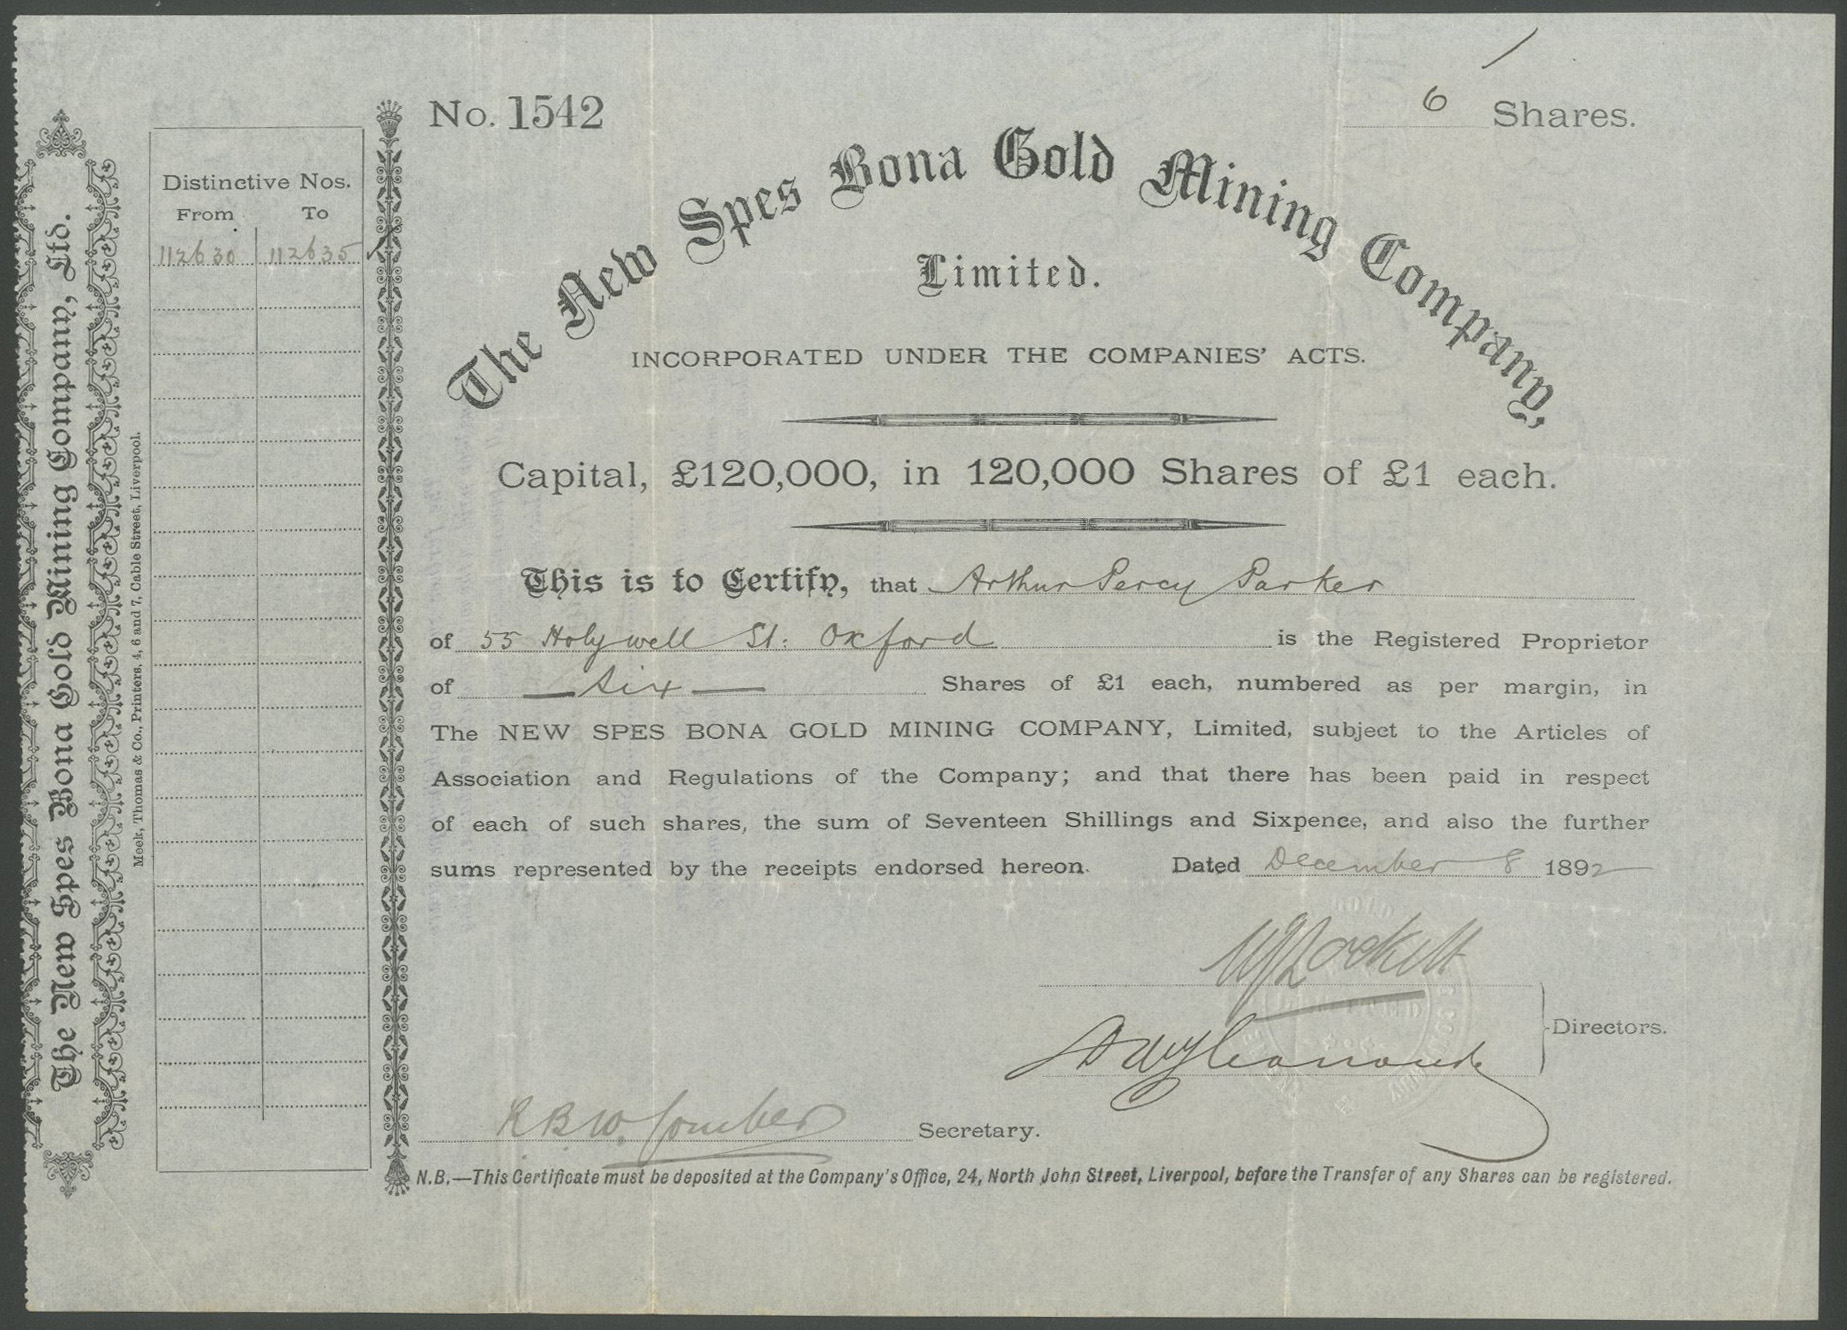 The New Spes Bona Gold Mining Company, Ltd.
Meek, Thomas & Co., Printers, 4, 6 and 7, Cable Street, Liverpool.
Distinctive Nos.
From To
112630 112635
No. 1542
6 Shares.
The New Spes Bona Gold Mining Company,
Limited.
INCORPORATED UNDER THE COMPANIES' ACTS.
Capital, £120,000, in 120,000 Shares of £1 each.
This is to Certify, that Arthur Percy Parker
of 55 Holywell St: Oxford is the Registered Proprietor
of — Six — Shares of £1 each, numbered as per margin, in
The NEW SPES BONA GOLD MINING COMPANY, Limited, subject to the Articles of
Association and Regulations of the Company; and that there has been paid in respect
of each of such shares, the sum of Seventeen Shillings and Sixpence, and also the further
sums represented by the receipts endorsed hereon. Dated December 8 1892
Directors.
R. B. W. Comber Secretary.
N.B.—This Certificate must be deposited at the Company's Office, 24, North John Street, Liverpool, before the Transfer of any Shares can be registered.